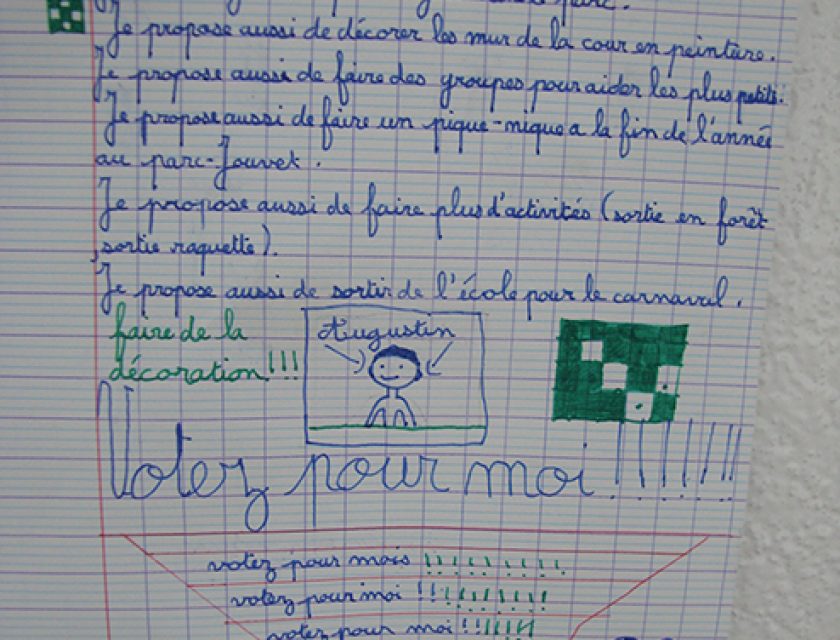 Je propose aussi de décorer les mur de la cour en peinture.
Je propose aussi de faire des groupes pour aider les plus petits.
Je propose aussi de faire un pique-nique a la fin de l'année
au parc-Jouvet.
Je propose aussi de faire plus d'activités (sortie en forêt
,sortie raquette).
Je propose aussi de sortir de l'école pour le carnaval.
faire de la
décoration!!!
Augustin
Votez pour moi !!!!!!!
votez pour mois !!!!!!!!!
votez pour moi !!!!!!!!!
votez pour moi !!!!!!!